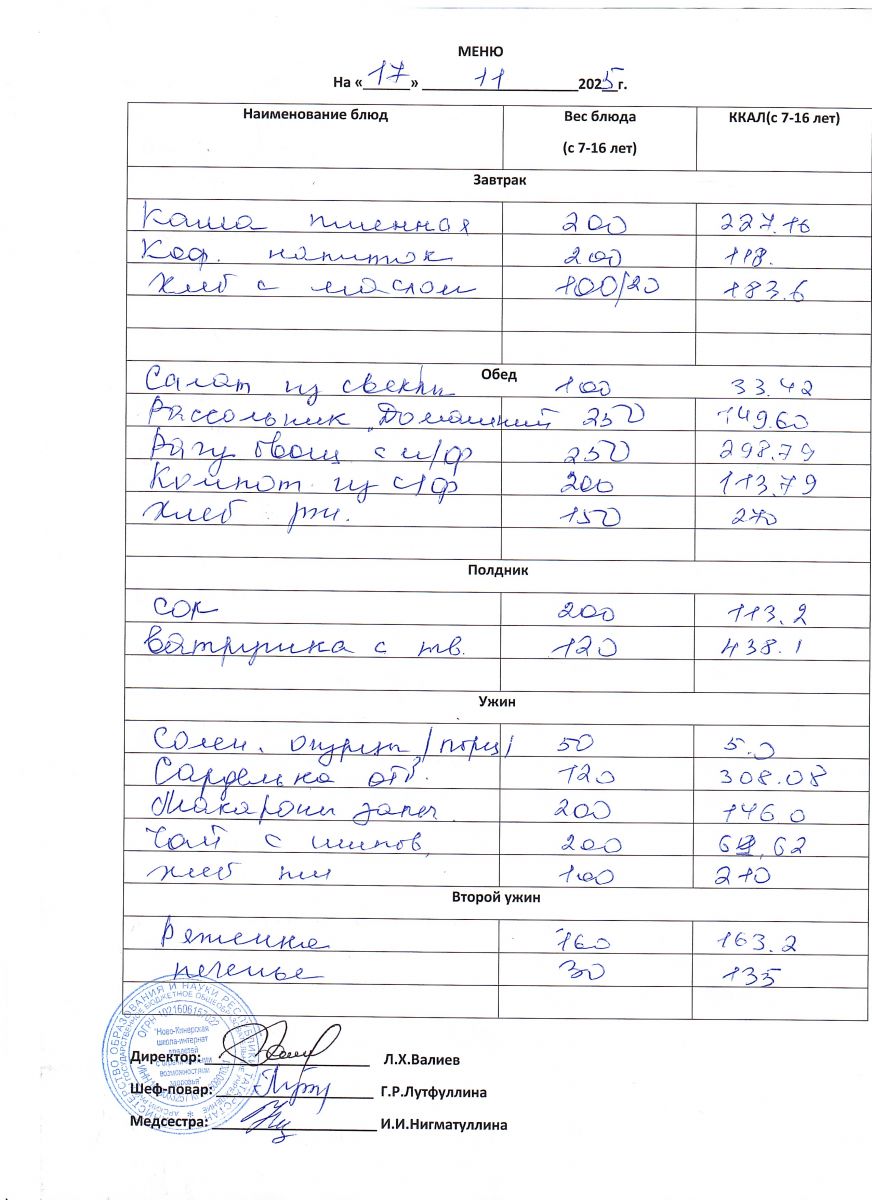 МЕНЮ
На «17» 11 2025 г.
Наименование блюд Вес блюда (с 7-16 лет) ККАЛ(с 7-16 лет)
Завтрак
Каша пшенная 200 227.16
Коф. напиток 200 118.
Хлеб с маслом 100/20 183.6
Обед
Салат из свеклы 100 33.42
Рассольник "Домашний 250 149.60
Рагу овощ с м/ф 250 298.79
Компот из с/ф 200 113.79
Хлеб рж. 150 270
Полдник
Сок 200 113.2
Ватрушка с тв. 120 438.1
Ужин
Солен. огурцы /порц/ 50 5.0
Сарделька отв. 120 308.08
Макароны запеч. 200 146 0
Чай с шипов. 200 ,62
хлеб пш 100 210
Второй ужин
Ряженка 160 163.2
печенье 30 135
Директор: Л.Х.Валиев
Шеф-повар: Г.Р.Лутфуллина
Медсестра: И.И.Нигматуллина
МИНИСТЕРСТВО ОБРАЗОВАНИЯ И НАУКИ РЕСПУБЛИКИ ТАТАРСТАН
ОГРН 1021606157022
"Ново-Кинерская
школа-интернат
возможностями
здоровья"